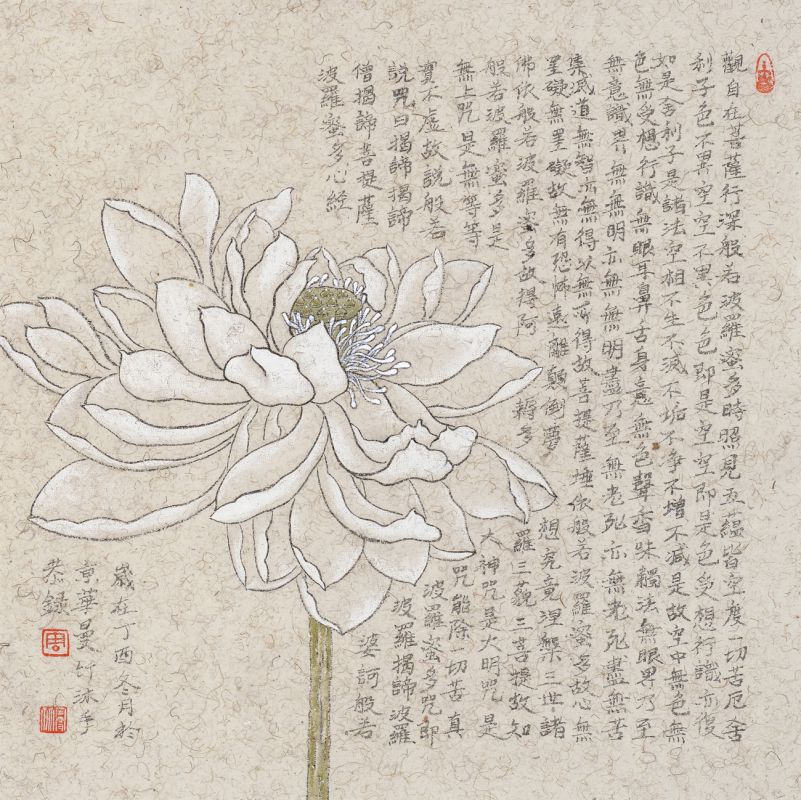 觀自在菩薩行深般若波羅蜜多時照見五蘊皆空度一切苦厄舍
利子色不異空空不異色色即是空空即是色受想行識亦復
如是舍利子是諸法空相不生不滅不垢不淨不增不減是故空中無色無
色無受想行識無眼耳鼻舌身意無色聲香味觸法無眼界乃至
無意識界無無明亦無無明盡乃至無老死亦無老死盡無苦
集滅道無智亦無得以無所得故菩提薩埵依般若波羅蜜多故心無
罣礙無罣礙故無有恐怖遠離顛倒夢想究竟涅槃三世諸
佛依般若波羅蜜多故得阿耨多羅三藐三菩提故知
般若波羅蜜多是大神咒是大明咒是
無上咒是無等等咒能除一切苦真
實不虛故說般若波羅蜜多咒即
說咒曰揭諦揭諦波羅揭諦波羅
僧揭諦菩提薩婆訶般若
波羅蜜多心經
歲在丁酉冬月於
京華曼竹沐手
恭錄
周